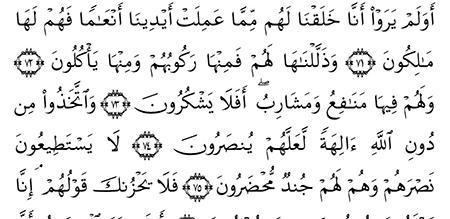 أَوَلَمْ يَرَوْا۟ أَنَّا خَلَقْنَا لَهُم مِّمَّا عَمِلَتْ أَيْدِينَآ أَنْعَٰمًا فَهُمْ لَهَا
مَٰلِكُونَ ٧١ وَذَلَّلْنَٰهَا لَهُمْ فَمِنْهَا رَكُوبُهُمْ وَمِنْهَا يَأْكُلُونَ ٧٢
وَلَهُمْ فِيهَا مَنَٰفِعُ وَمَشَارِبُ ۖ أَفَلَا يَشْكُرُونَ ٧٣ وَٱتَّخَذُوا۟ مِن
دُونِ ٱللَّهِ ءَالِهَةً لَّعَلَّهُمْ يُنصَرُونَ ٧٤ لَا يَسْتَطِيعُونَ
نَصْرَهُمْ وَهُمْ لَهُمْ جُندٌ مُّحْضَرُونَ ٧٥ فَلَا يَحْزُنكَ قَوْلُهُمْ ۘ إِنَّا